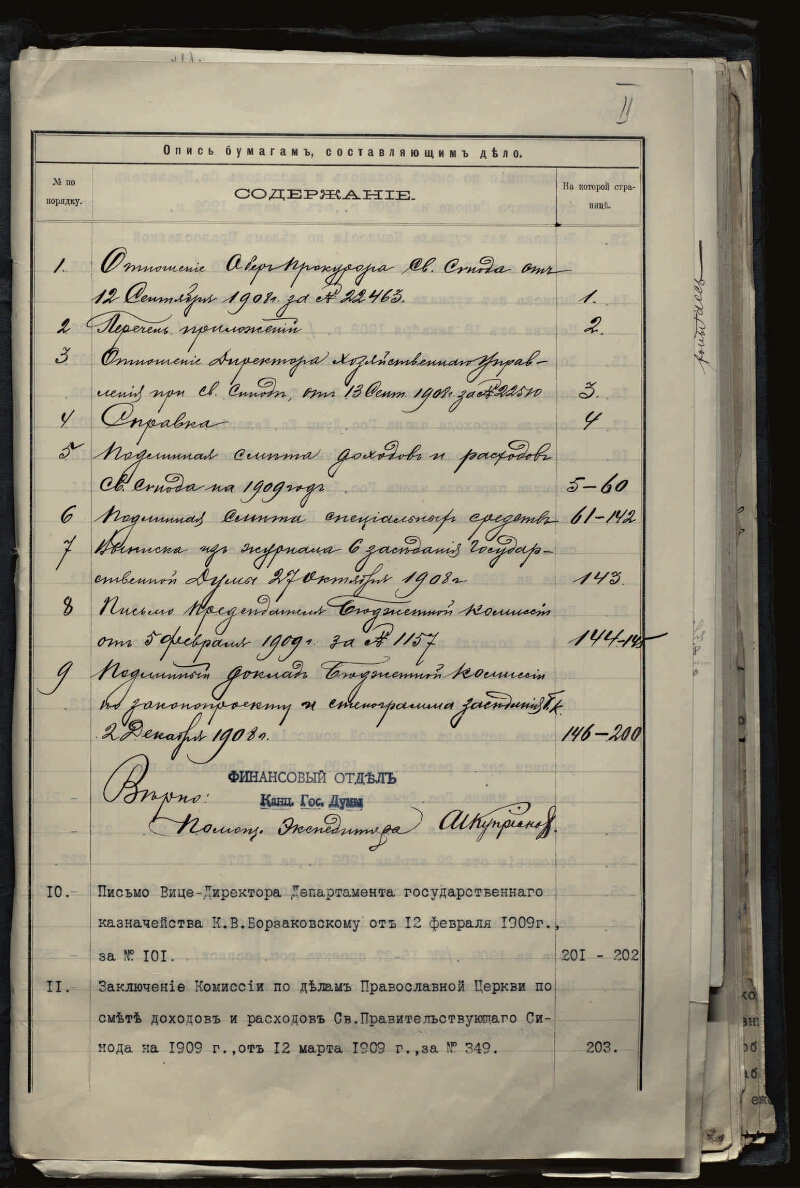 II
Опись бумагамъ, составляющимъ дѣло.
№ по порядку.
СОДЕРЖАНІЕ.
На которой стра-
ницѣ.
1. Отношеніе Оберъ Прокурора Св. Синода отъ
12 Сентября 1908г. за № 22463. 1.
2 Перечень приложеній 2.
3 Отношеніе Директора Хозяйственнаго Управ-
ленія при Св. Синодѣ, отъ 13 Сент 1908г. за № 22510 3.
4 Справка 4
5 Подлинная смѣта доходовъ и расходовъ
Св. Синода на 1909 годъ 5-60
6 Подлинная смѣта спеціальныхъ средствъ 61-142
7 Выписка изъ журнала 6 засѣданія Государ-
ственной Думы 27 Октября 1908г 143.
8 Письмо Предсѣдателя Бюджетной Комиссіи
отъ 5 февраля 1909г. за № 1157 144-145
9 Подлинный докладъ Бюджетной Комиссіи
по законопроекту и стенограмма засѣданія Б.К.
2 Декабря 1908г. 146-200
ФИНАНСОВЫЙ ОТДѢЛЪ
Вѣрно: Канц. Гос. Думы
Помощ. Экспедитора АКупріянов
10. Письмо Вице-Директора Департамента государственнаго
казначейства К.В.Борзаковскому отъ 12 февраля 1909г.,
за № 101. 201 - 202
11. Заключеніе Комиссіи по дѣламъ Православной Церкви по
смѣтѣ доходовъ и расходовъ Св.Правительствующаго Си-
нода на 1909 г.,отъ 12 марта 1909 г.,за № 349. 203.